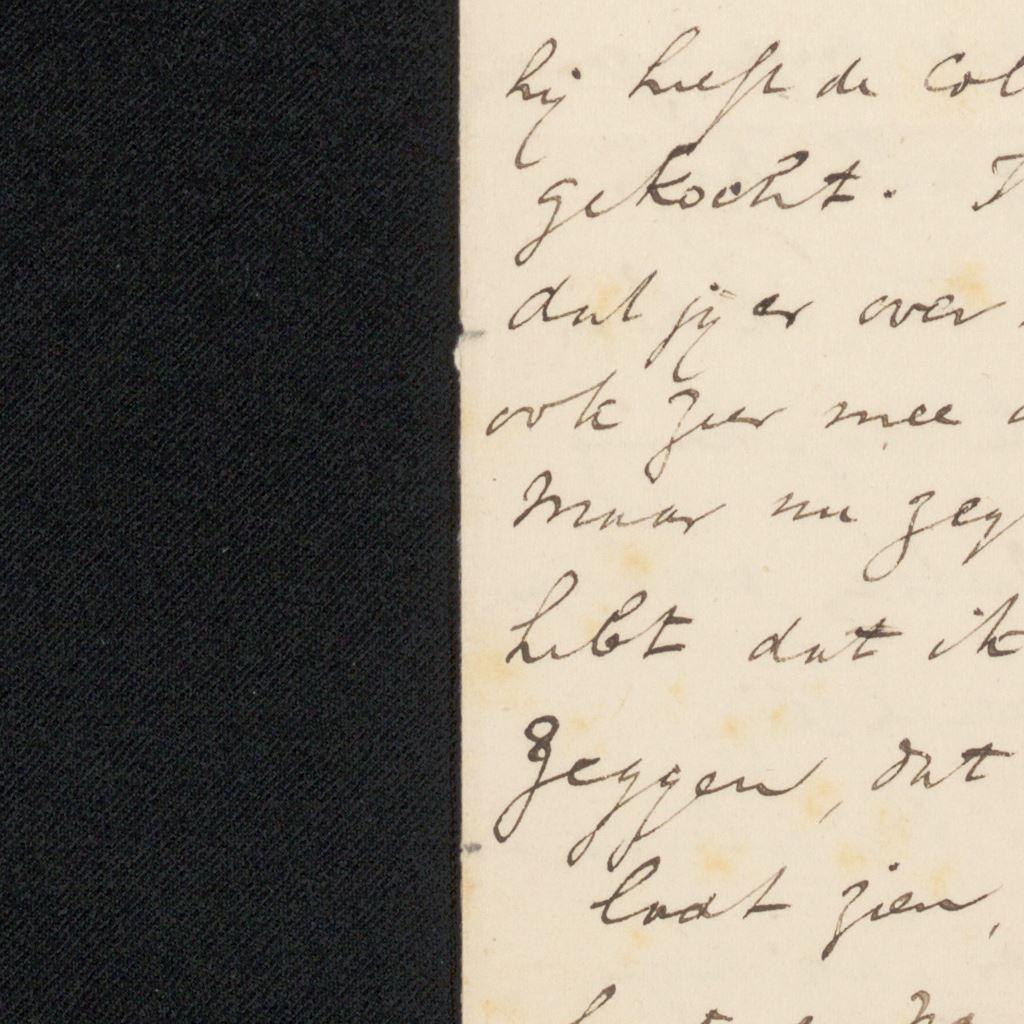 hij heeft de Col
gekocht.
dat jij er over
ook zeer mee
Maar nu zeg
hebt dat ik
Zeggen, dat
laat zien,